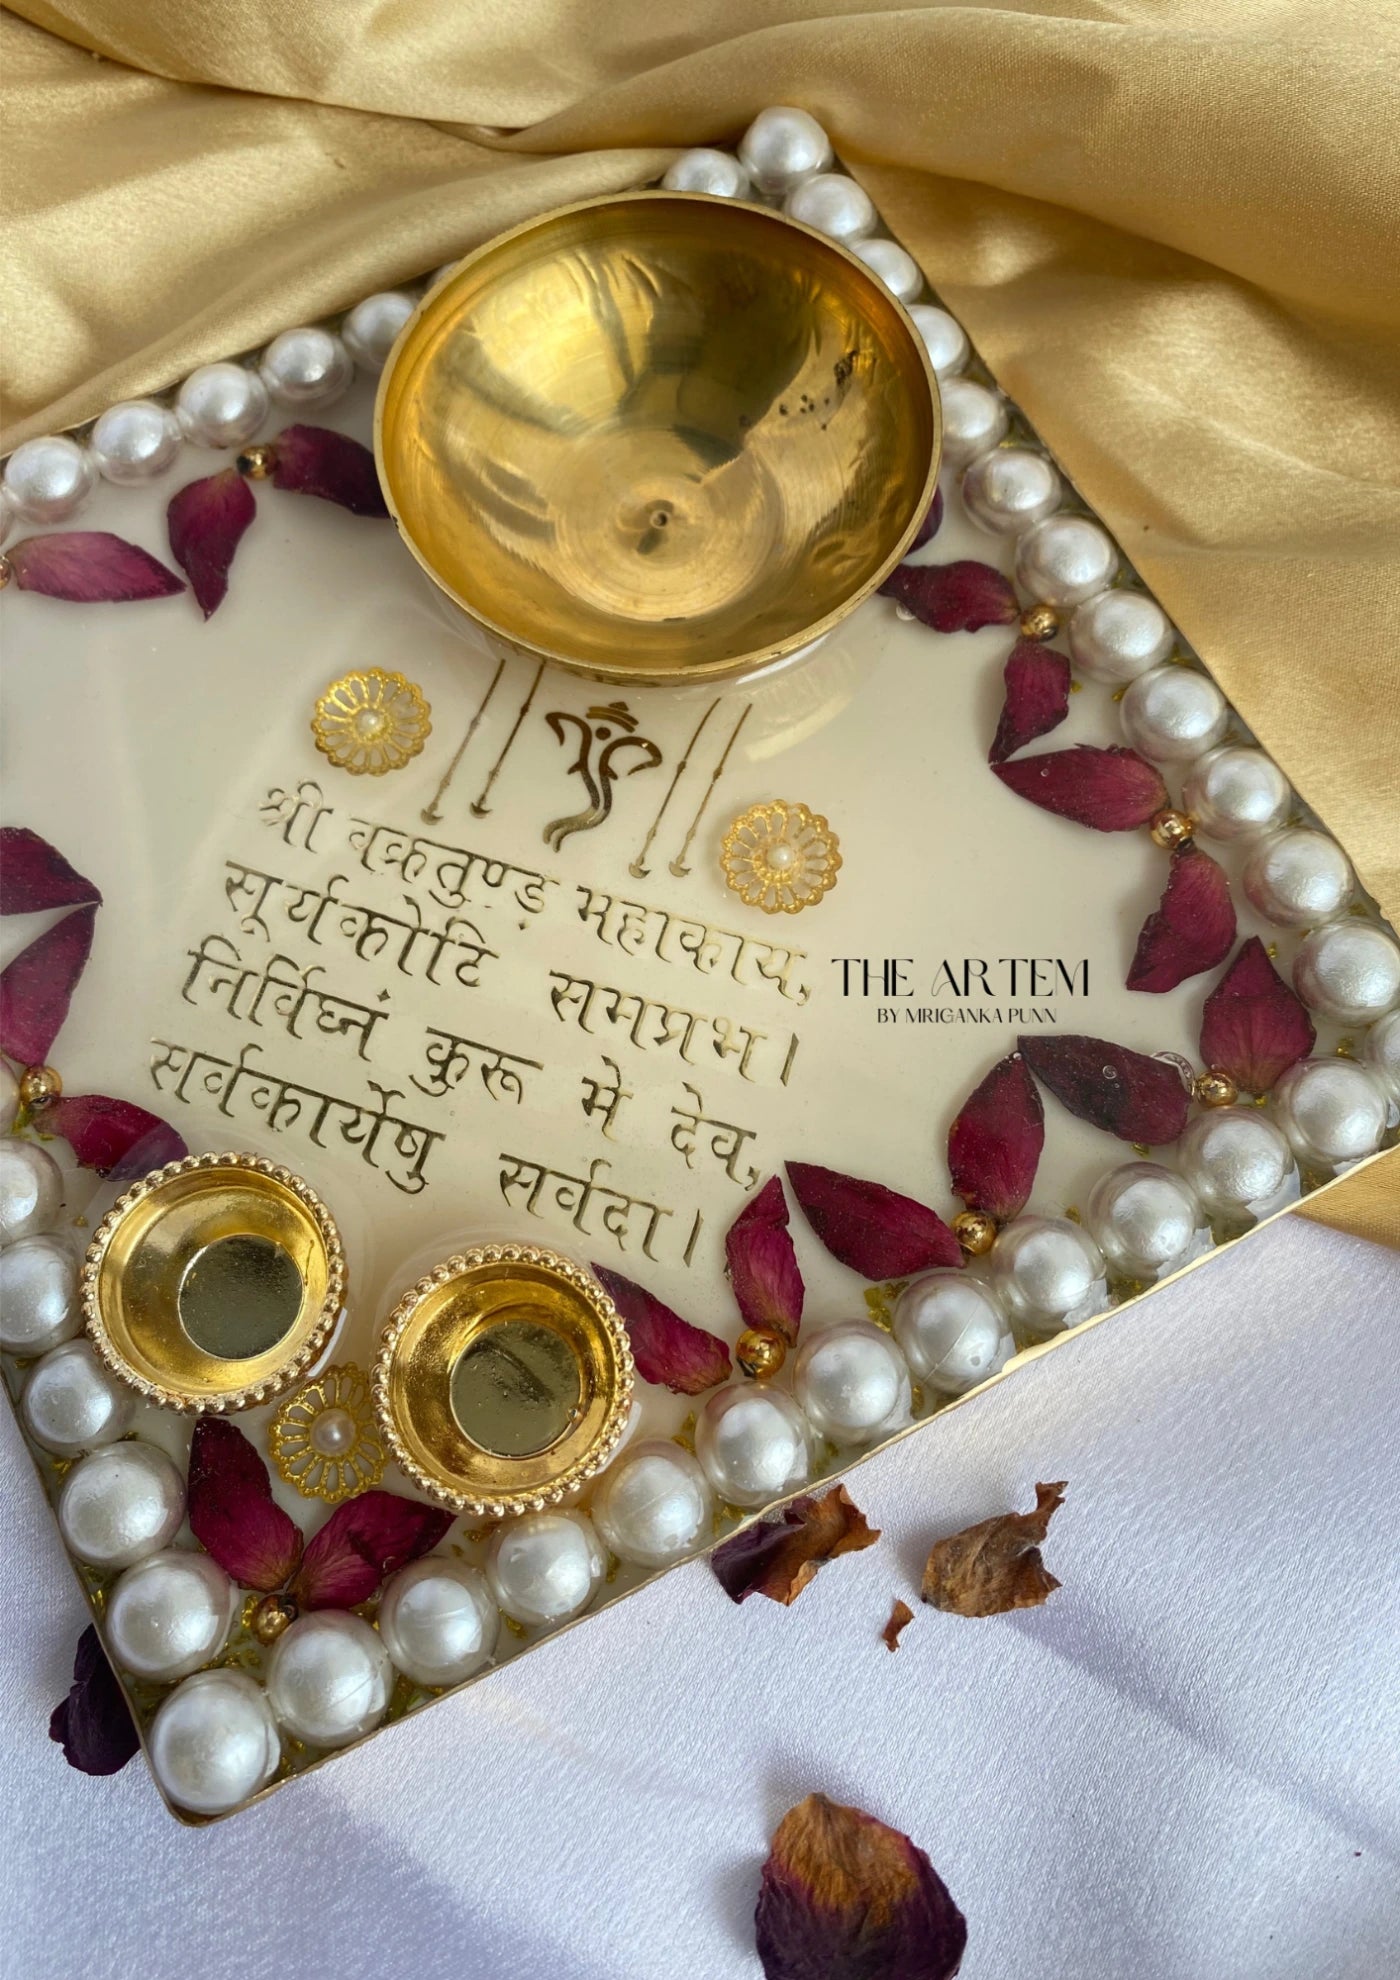 श्री वक्रतुण्ड़ महाकाय,
सूर्यकोटि समप्रभ।
निर्विघ्नं कुरू मे देव,
सर्वकार्येषु सर्वदा।
THE ARTEM
BY MRIGANKA PUNN